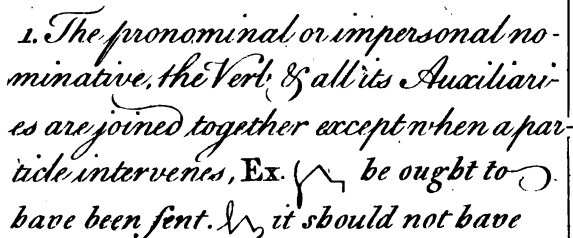 1. The pronominal or impersonal no-
minative, the Verb, & all its Auxiliari-
es are joined together except when a par-
ticle intervenes, Ex. he ought to
have been sent. it should not have